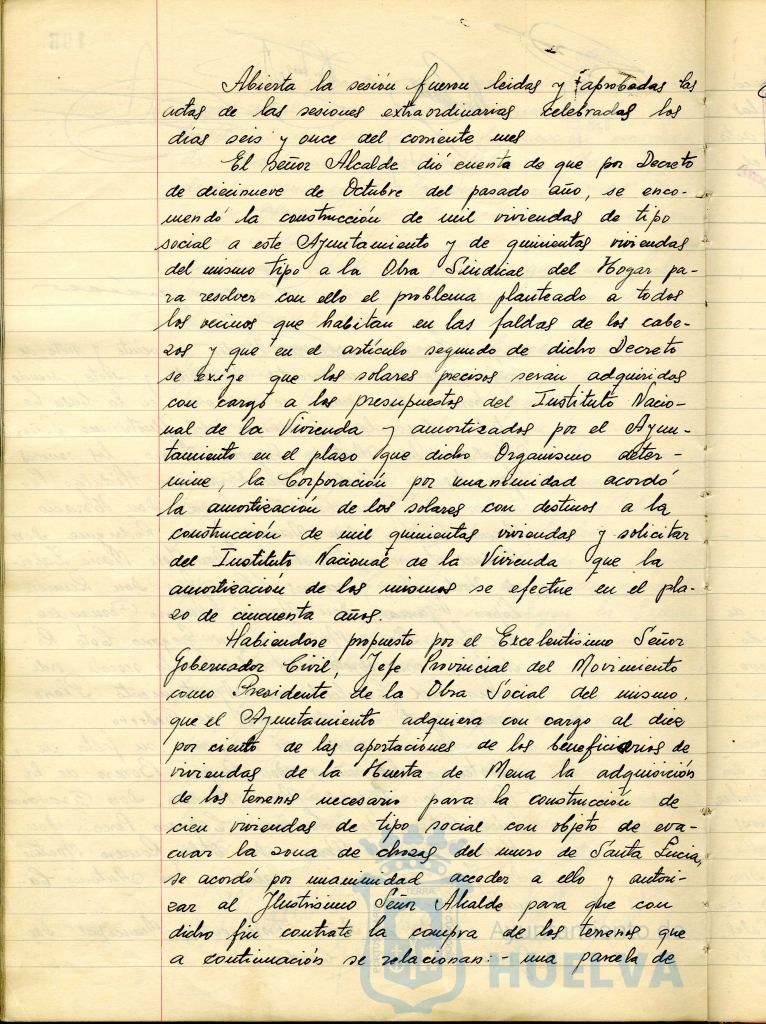 Abierta la sesión fueron leidas y aprobadas las
actas de las sesiones extraordinarias celebradas los
días seis y once del corriente mes
El señor Alcalde dió cuenta de que por Decreto
de diecinueve de Octubre del pasado año, se enco-
mendó la construcción de mil viviendas de tipo
social a este Ayuntamiento y de quinientas viviendas
del mismo tipo a la Obra Sindical del Hogar pa-
ra resolver con ello el problema planteado a todos
los vecinos que habitan en las faldas de los cabe-
zos y que en el artículo segundo de dicho Decreto
se exige que los solares precisos serán adquiridos
con cargo a los presupuestos del Instituto Nacio-
nal de la Vivienda y amortizados por el Ayun-
tamiento en el plazo que dicho Organismo deter-
mine, la Corporación por unanimidad acordó
la amortización de los solares con destinos a la
construcción de mil quinientas viviendas y solicitar
del Instituto Nacional de la Vivienda que la
amortización de los mismos se efectue en el pla-
zo de cincuenta años.
Habiendose propuesto por el Excelentisimo Señor
Gobernador Civil, Jefe Provincial del Movimiento
como Presidente de la Obra Social del mismo,
que el Ayuntamiento adquiera con cargo al diez
por ciento de las aportaciones de los beneficiarios de
viviendas de la Huerta de Mena la adquisición
de los terrenos necesario para la construcción de
cien viviendas de tipo social con objeto de eva-
cuar la zona de chozas del muro de Santa Lucia,
se acordó por unanimidad acceder a ello y autori-
zar al Ilustrisimo Señor Alcalde para que con
dicho fin contrate la compra de los terrenos que
a continuación se relacionan: - una parcela de
HUELVA